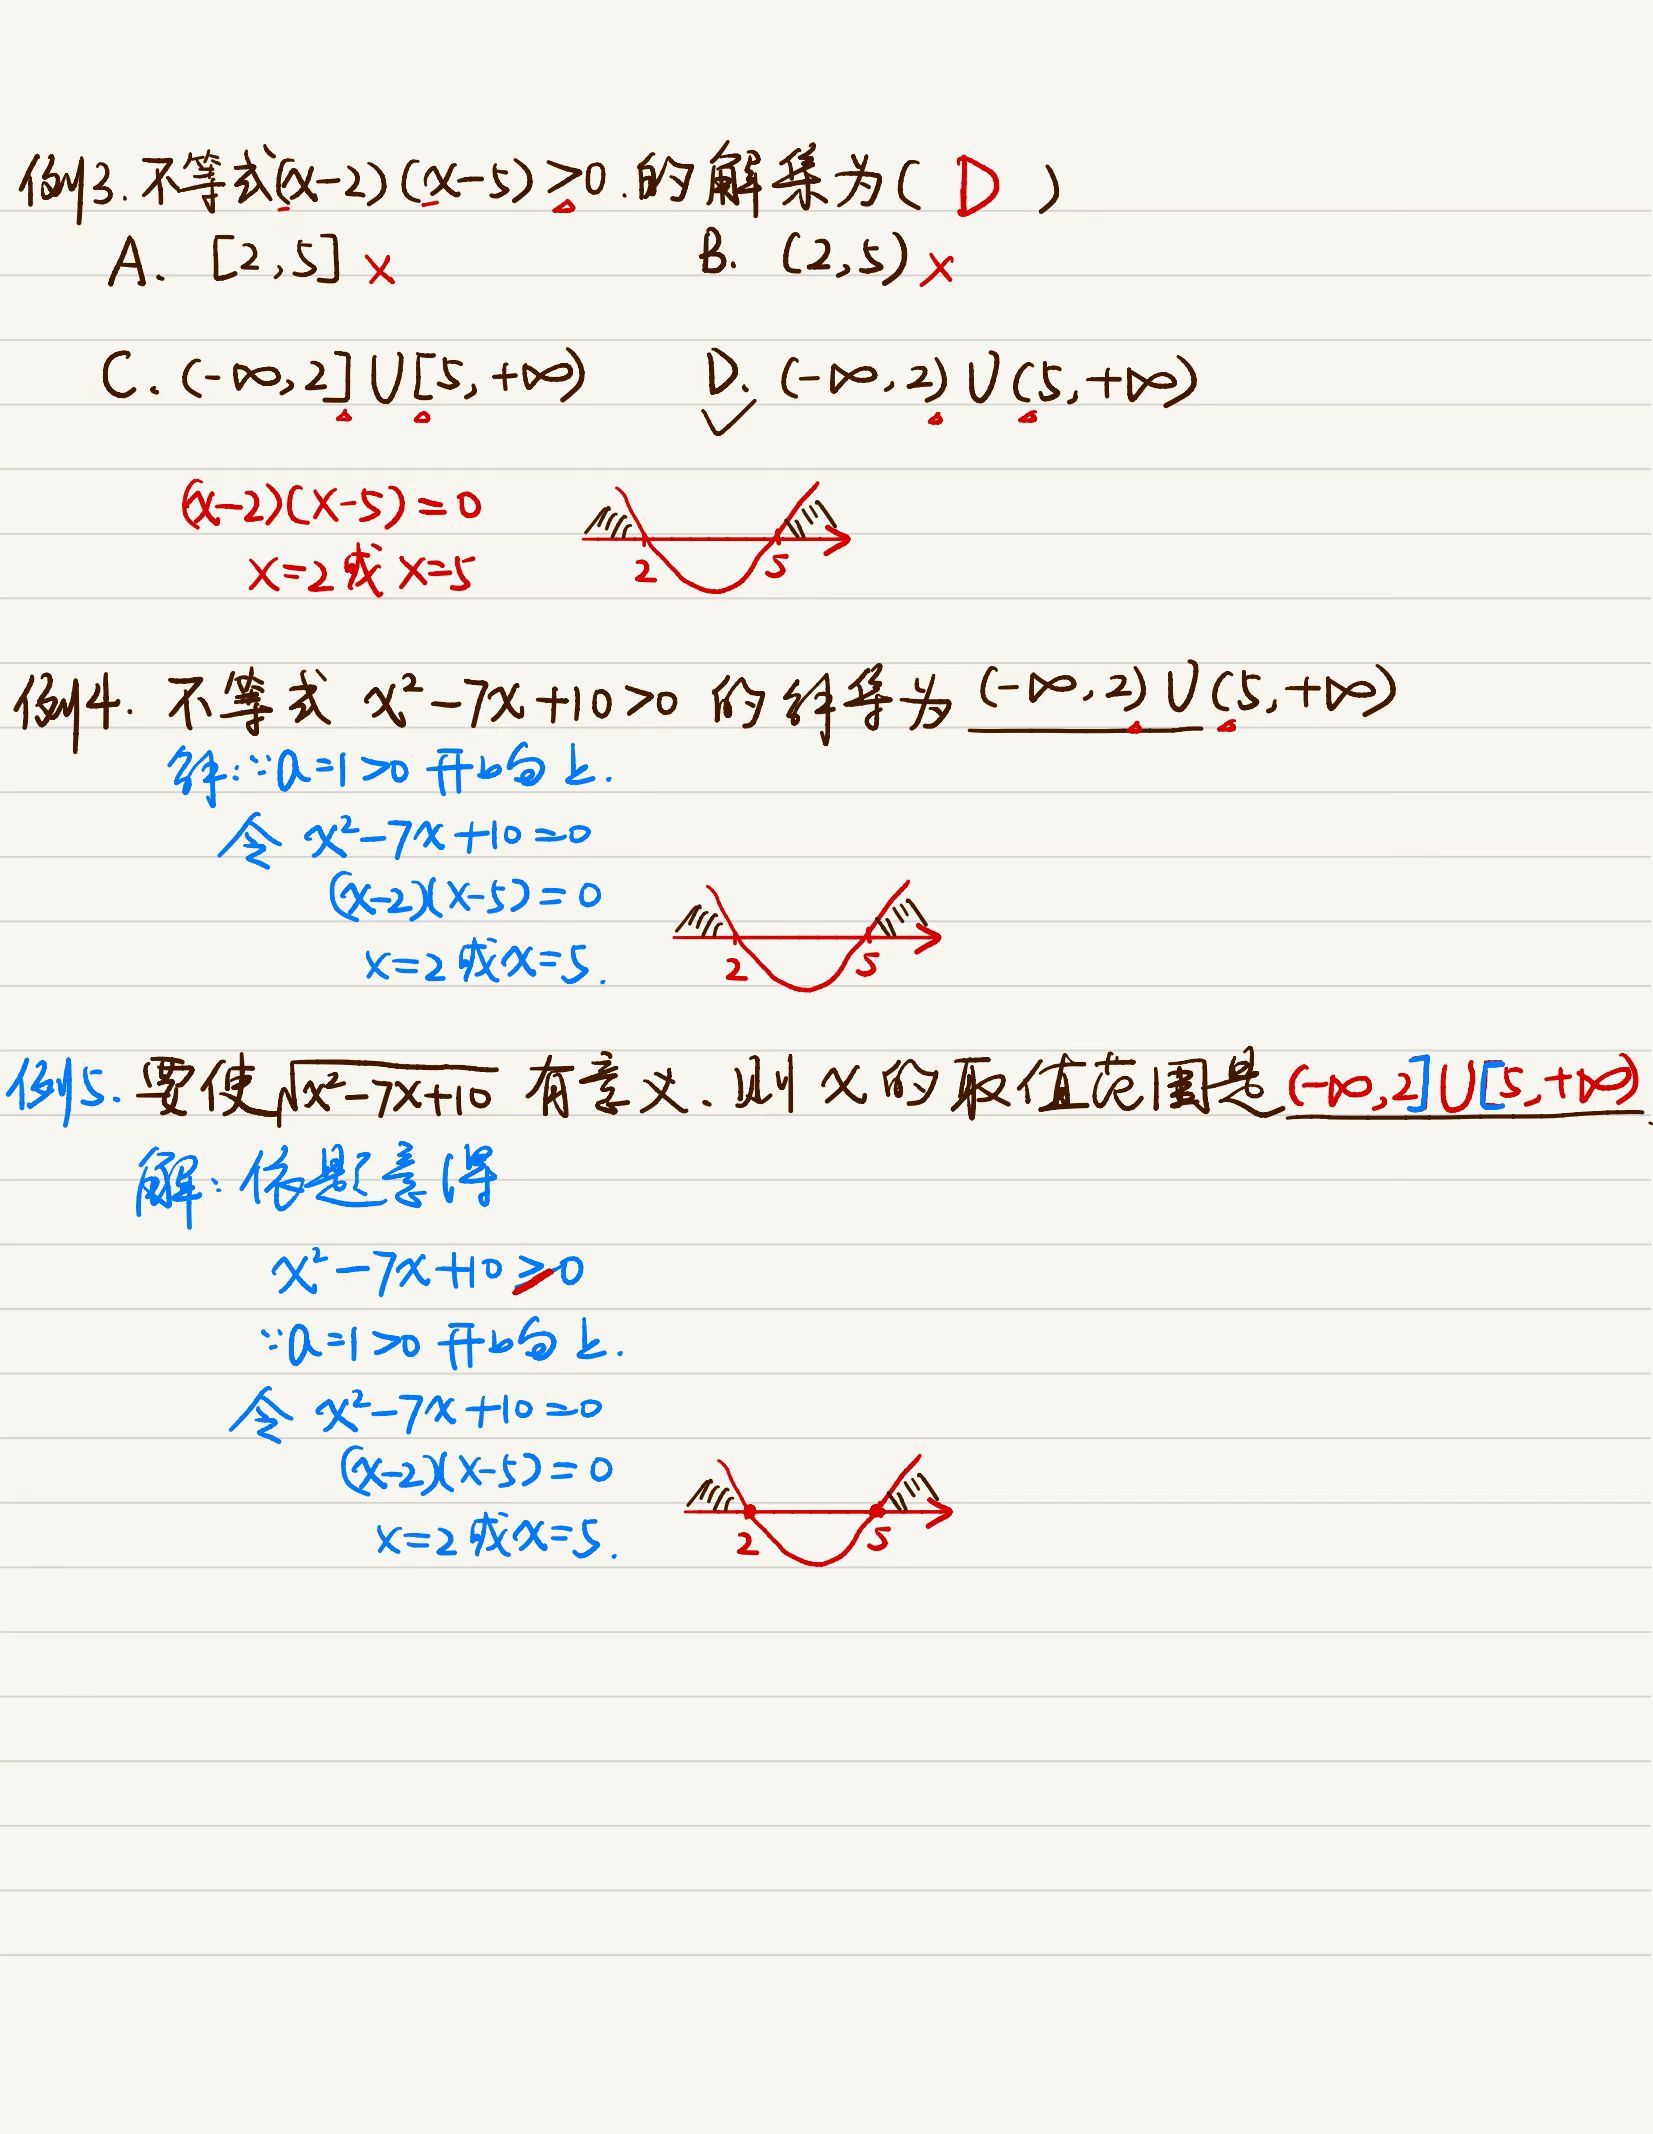 例3. 不等式(x-2)(x-5)>0.的解集为( D )
A. [2,5] × B. (2,5) ×
C. (-∞,2]∪[5,+∞) D. (-∞,2)∪(5,+∞)
(x-2)(x-5)=0
x=2或x=5
2 5
例4. 不等式 x²-7x+10>0 的解集为 (-∞,2)∪(5,+∞)
解:∵a=1>0 开口向上.
令 x²-7x+10=0
(x-2)(x-5)=0
x=2或x=5.
2 5
例5. 要使√(x²-7x+10) 有意义、则 x 的取值范围是 (-∞,2]∪[5,+∞).
解: 依题意得
x²-7x+10≥0
∵a=1>0 开口向上.
令 x²-7x+10=0
(x-2)(x-5)=0
x=2或x=5.
2 5